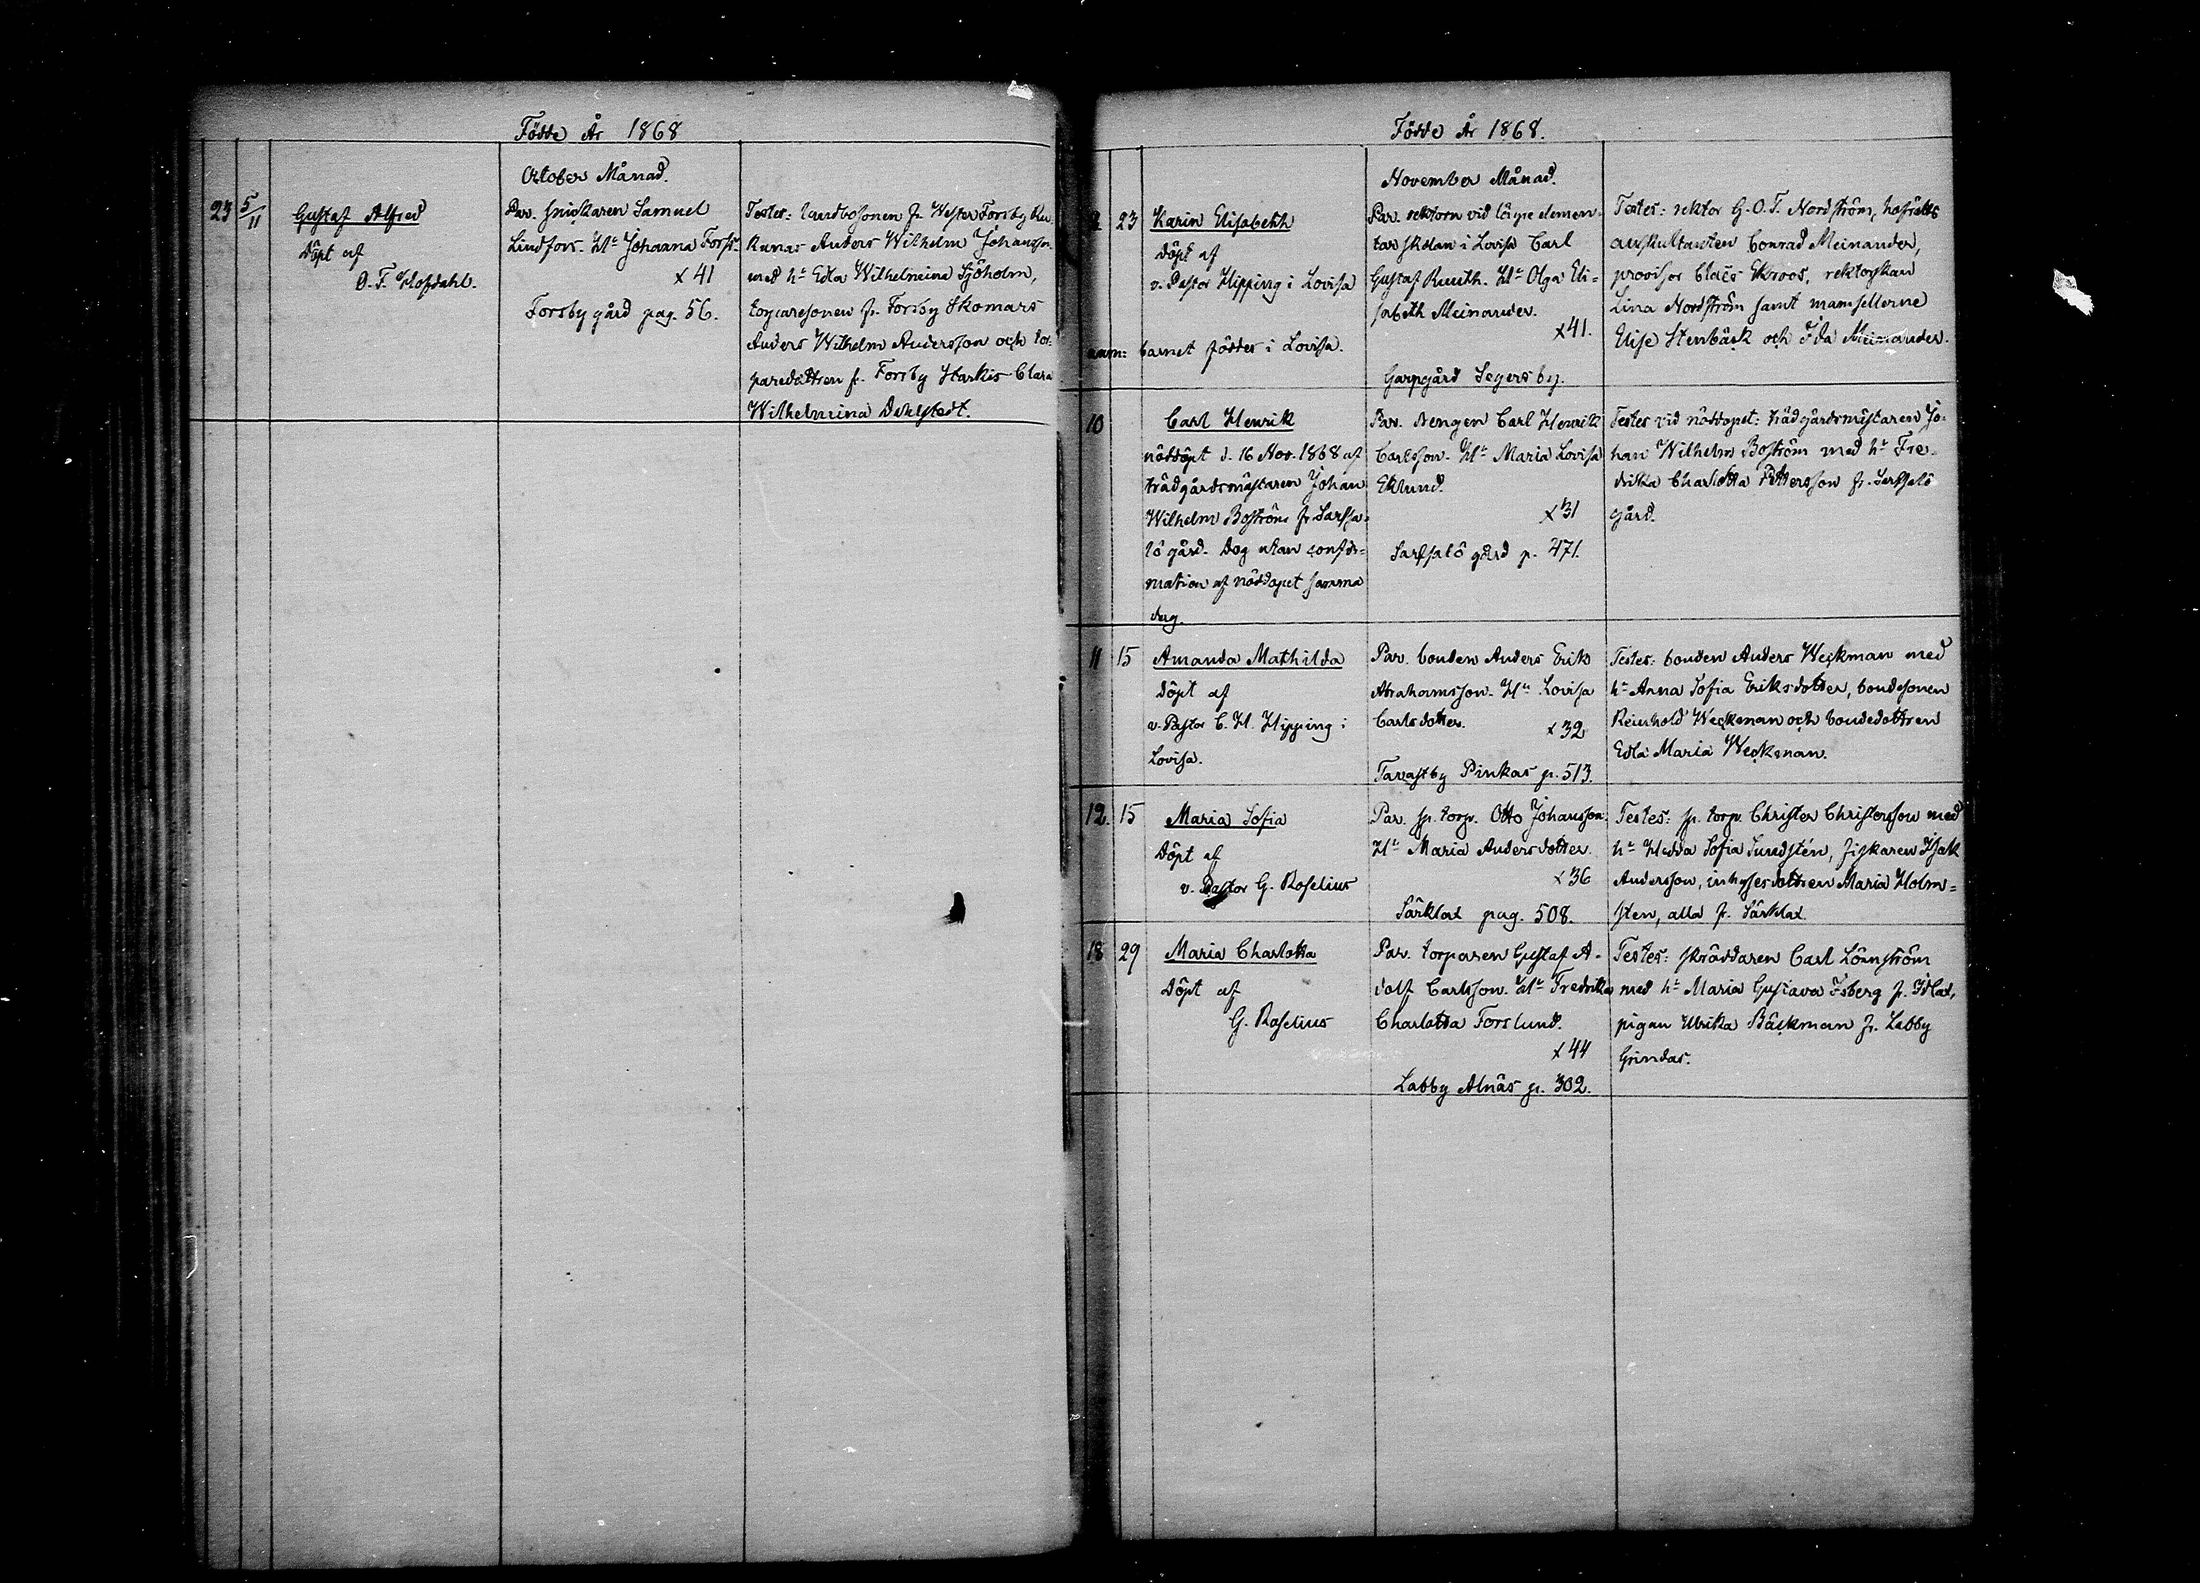 Födde År 1868
October Månad.
23 5/11 Gustaf Alfred
Döpt af
O. F. Hofdahl.
Par. snickaren Samuel
Lindfors. Hu Johanna Forss.
x 41
Forsby gård pag. 56.
Testes: landbosonen fr. Wester Forsby
Anders Wilhelm Johansson
med hu Edla Wilhelmina Sjöholm,
torparesonen fr. Forsby Skomars
Anders Wilhelm Andersson och tor-
paredottren fr. Forsby Harkis Clara
Wilhelmina Dahlstedt.
Födde År 1868.
November Månad.
23 Karin Elisabeth
döpt af
v. Pastor Hipping i Lovisa
anm: barnet föddes i Lovisa.
Par. rektorn vid lägre elemen-
tar skolan i Lovisa Carl
Gustaf Ruuth. Hu Olga Eli-
sabeth Meinander.
x 41.
Garpgård Segersby.
Testes: rektor G. O. T. Nordström, hofrätts
auskultanten Conrad Meinander,
provisor Claës Ekroos, rektorskan
Lina Nordström samt mamsellerne
Elise Stenbäck och Ida Meinander.
10 Carl Henrik
nöddöpt d. 16 Nov. 1868 af
trädgårdsmästaren Johan
Wilhelm Boström fr. Sarfsa-
lö gård. Dog utan confir-
mation af nöddopet samma
dag.
Par. drengen Carl Henrik
Carlsson. Hu Maria Lovisa
Eklund.
x 31
Sarfsalö gård p. 471.
Testes vid nöddopet: trädgårdsmästaren Jo-
han Wilhelm Boström med hu Fre-
drika Charlotta Pettersson fr. Sarfsalö
gård.
11 15 Amanda Mathilda
döpt af
v. Pastor C. H. Hipping i
Lovisa.
Par. bonden Anders Erik
Abrahamsson. Hu Lovisa
Carlsdotter.
x 32
Tavastby Pinkas p. 513.
Testes: bonden Anders Weckman med
hu Anna Sofia Eriksdotter, bondesonen
Reinhold Weckman och bondedottren
Edla Maria Weckman.
12. 15 Maria Sofia
Döpt af
v. Pastor G. Roselius
Par. sp. torp. Otto Johansson.
Hu Maria Andersdotter.
x 36
Särklax pag. 508.
Testes: sp. torp. Christer Christersson med
hu Hedda Sofia Sundstén, fiskaren Isak
Andersson, inhysesdottren Maria Holm-
sten, alla fr. Särklax.
18 29 Maria Charlotta
Döpt af
G. Roselius
Par. torparen Gustaf A-
dolf Carlsson. Hu Fredrika
Charlotta Forslund.
x 44
Labby Alnäs p. 302.
Testes: skräddaren Carl Lönnström
med hu Maria Gustava Isberg fr. Idlax,
pigan Ulrika Bäckman fr. Labby
Grindas.